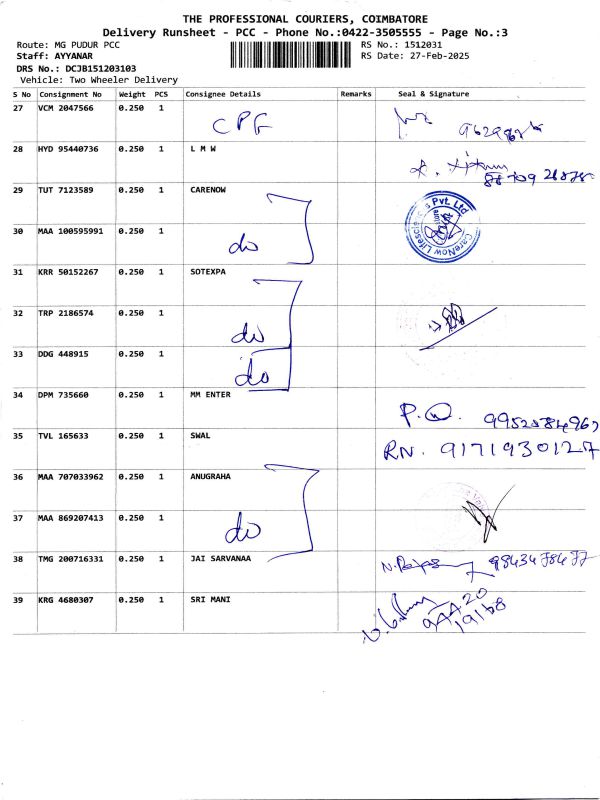 THE PROFESSIONAL COURIERS, COIMBATORE
Delivery Runsheet - PCC - Phone No.:0422-3505555 - Page No.:3
Route: MG PUDUR PCC RS No.: 1512031
Staff: AYYANAR RS Date: 27-Feb-2025
DRS No.: DCJB151203103
Vehicle: Two Wheeler Delivery
S No Consignment No Weight PCS Consignee Details Remarks Seal & Signature
27 VCM 2047566 0.250 1 CPF
28 HYD 95440736 0.250 1 L M W
29 TUT 7123589 0.250 1 CARENOW
CareNow Lifesciences Pvt. Ltd
30 MAA 100595991 0.250 1 do
31 KRR 50152267 0.250 1 SOTEXPA
32 TRP 2186574 0.250 1 do
33 DDG 448915 0.250 1 do
34 DPM 735660 0.250 1 MM ENTER P.
35 TVL 165633 0.250 1 SWAL RN. 9171930127
36 MAA 707033962 0.250 1 ANUGRAHA
37 MAA 869207413 0.250 1 do
38 TMG 200716331 0.250 1 JAI SARVANAA 9843478477
39 KRG 4680307 0.250 1 SRI MANI